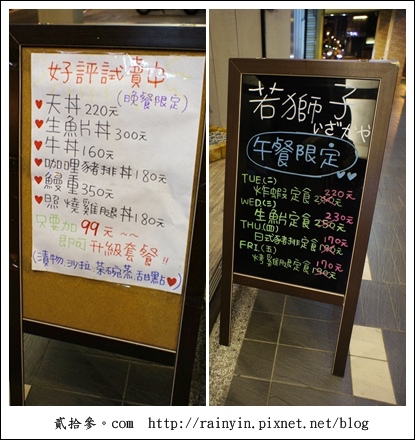 好評試賣中
(晚餐限定)
♥天丼220元
♥生魚片丼300元
♥牛丼160元
♥咖哩豬排丼180元
♥鰻重350元
♥照燒雞腿丼180元
只要加99元~~
即可升級套餐!!
(漬物.沙拉.茶碗蒸.甜點♥)
若獅子
いざかや
午餐限定
TUE(二)
炸蝦定食 220元
WED(三)
生魚片定食 230元
THU(四)
日式豬排定食 170元
FRI(五)
烤雞腿定食 170元
貳拾參。com http://rainyin.pixnet.net/blog